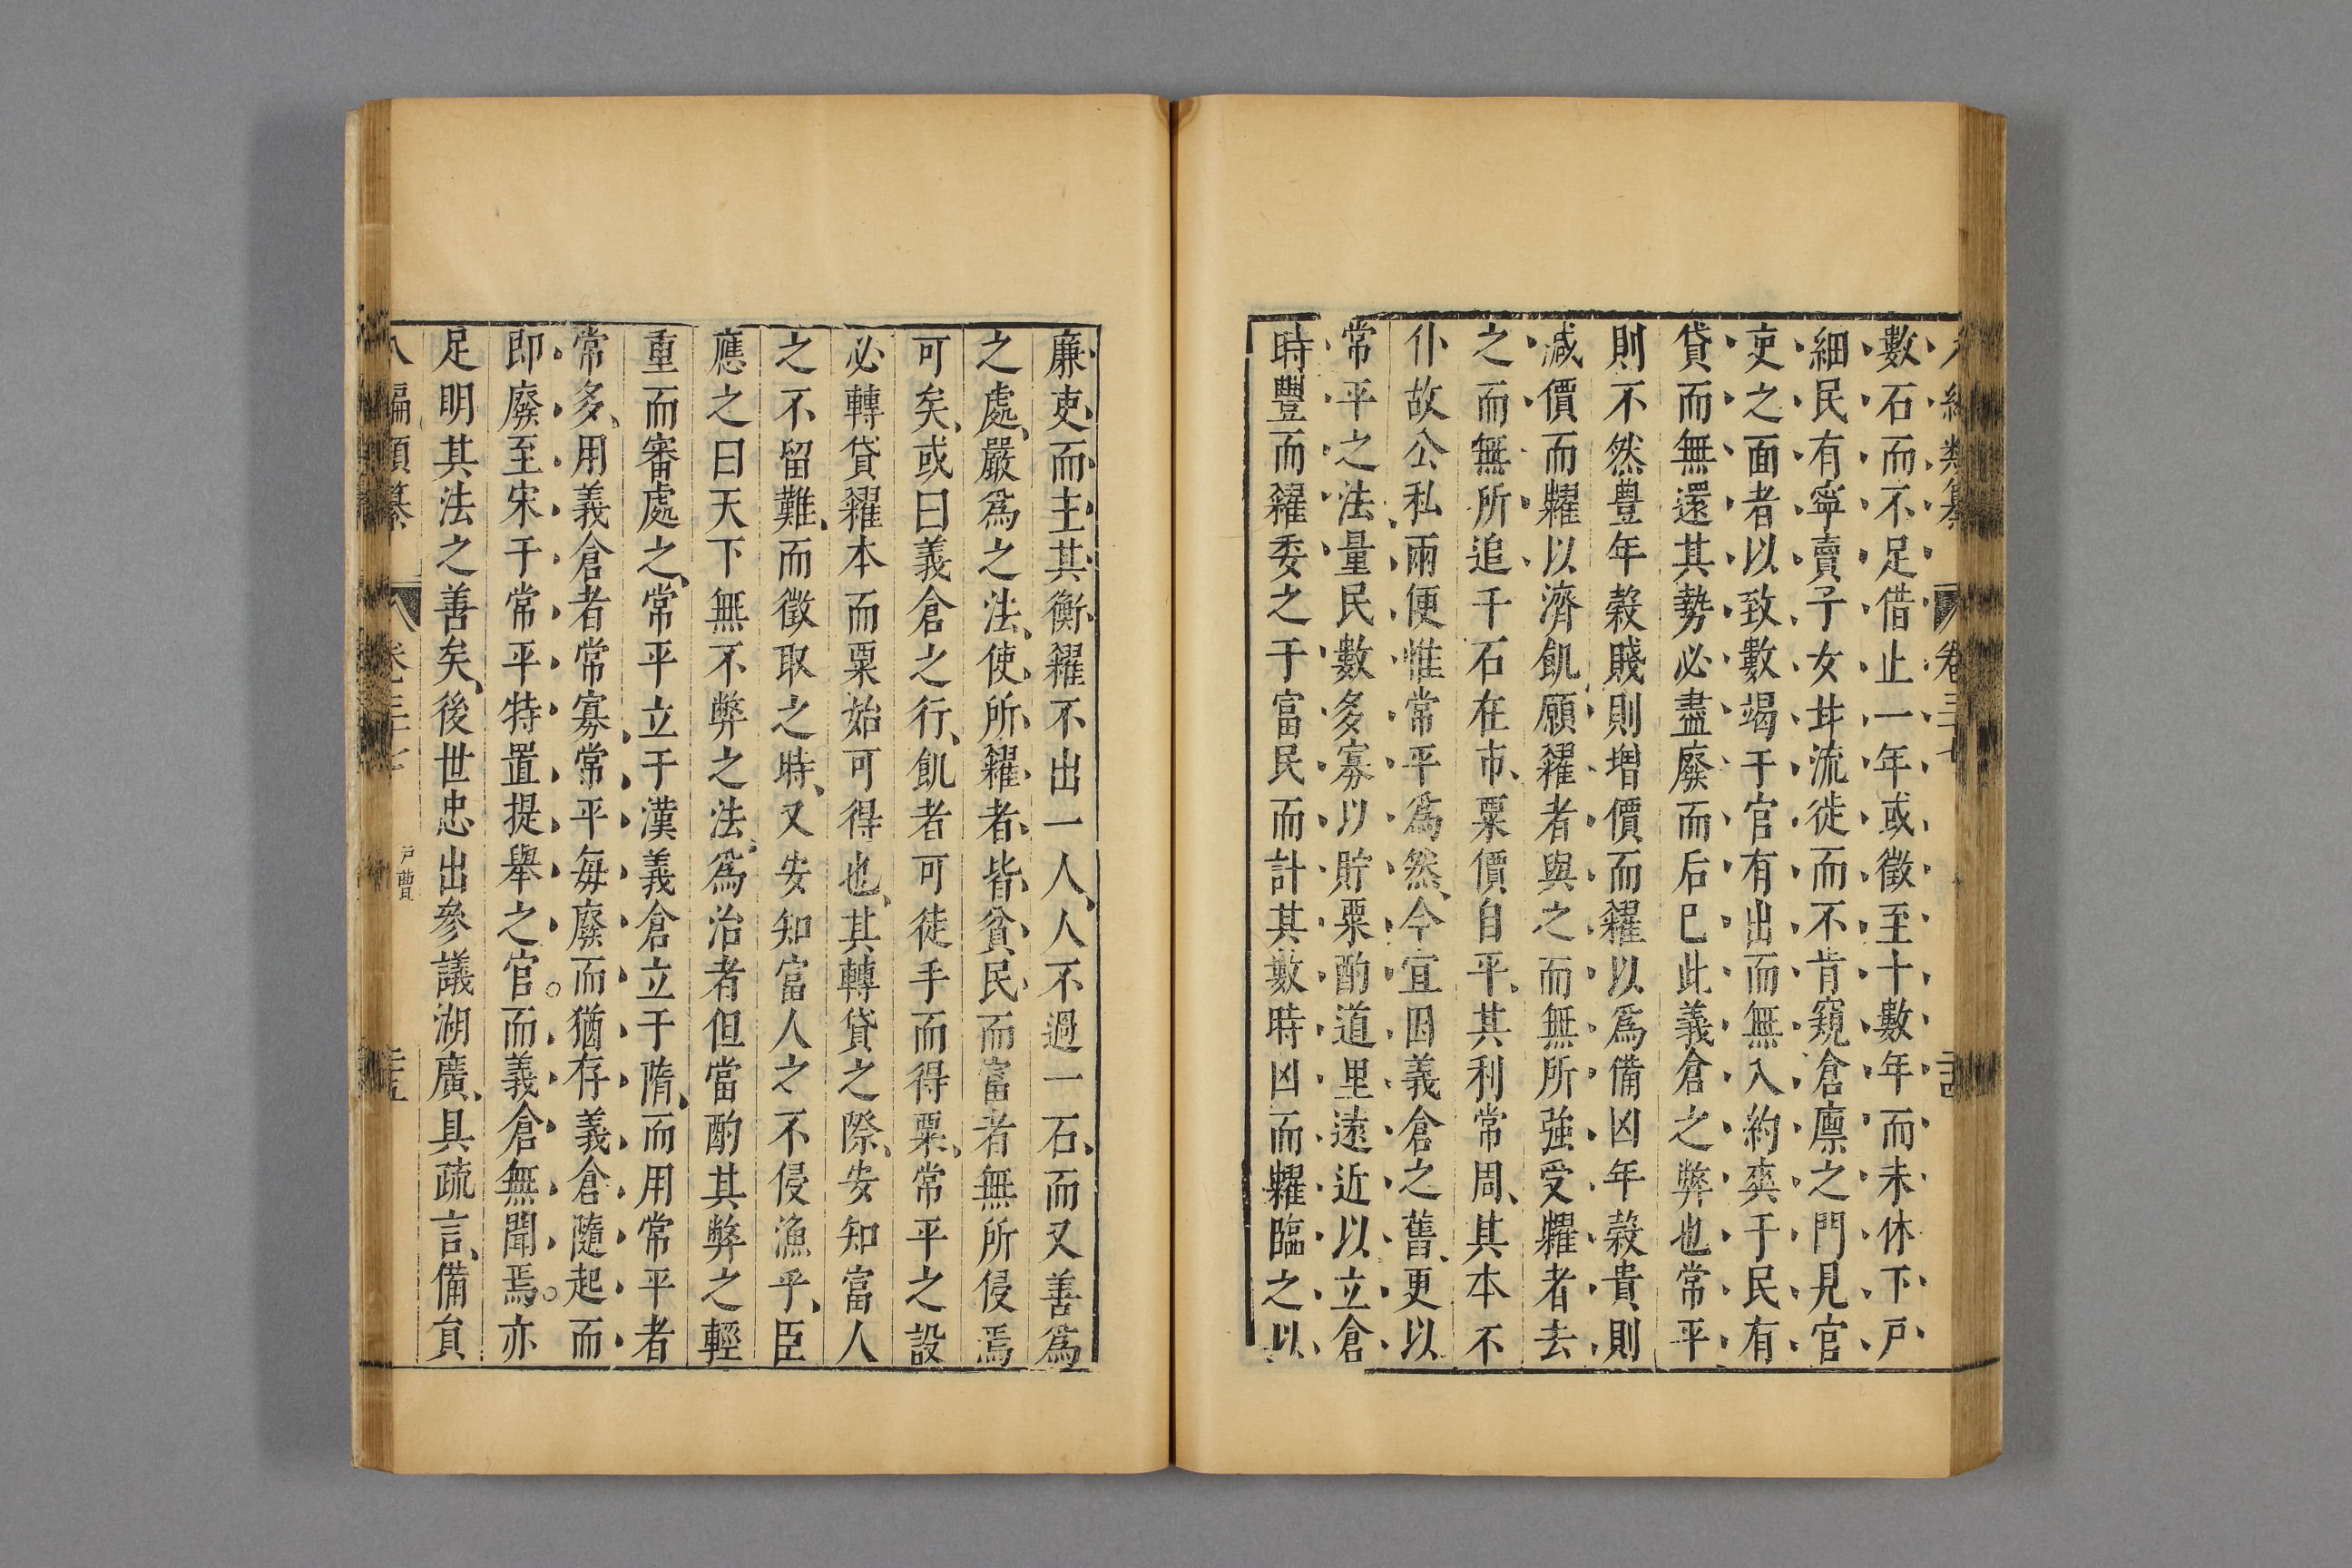 數石而不足借止一年或徵至十數年而未休下戸
細民有寧賣子女并流徙而不肯窺倉廪之門見官
吏之面者以致數竭于官有出而無入約爽于民有
貸而無還其勢必盡廢而后已此義倉之弊也常平
則不然豊年穀賤則增價而糴以爲備凶年穀貴則
減價而糶以濟飢願糴者與之而無所強受糶者去
之而無所追千石在市粟價自平其利常周其本不
仆故公私兩便惟常平爲然今宜因義倉之舊更以
常平之法量民數多寡以貯粟酌道里遠近以立倉
時豐而糴委之于富民而計其數時凶而糶臨之以
廉吏而主其衡糴不出一人人不過一石而又善爲
之處嚴爲之法使所糴者皆貧民而富者無所侵焉
可矣或曰義倉之行飢者可徒手而得粟常平之設
必轉貸糴本而粟始可得也其轉貸之際安知富人
之不留難而徵取之時又安知富人之不侵漁乎臣
應之曰天下無不弊之法爲治者但當酌其弊之輕
重而審處之常平立于漢義倉立于隋而用常平者
常多用義倉者常寡常平毎廢而猶存義倉隨起而
即廢至宋于常平特置提舉之官而義倉無聞焉亦
足明其法之善矣後世忠出參議湖廣具疏言備負
八編類纂 卷三十七 戸曹 三十五